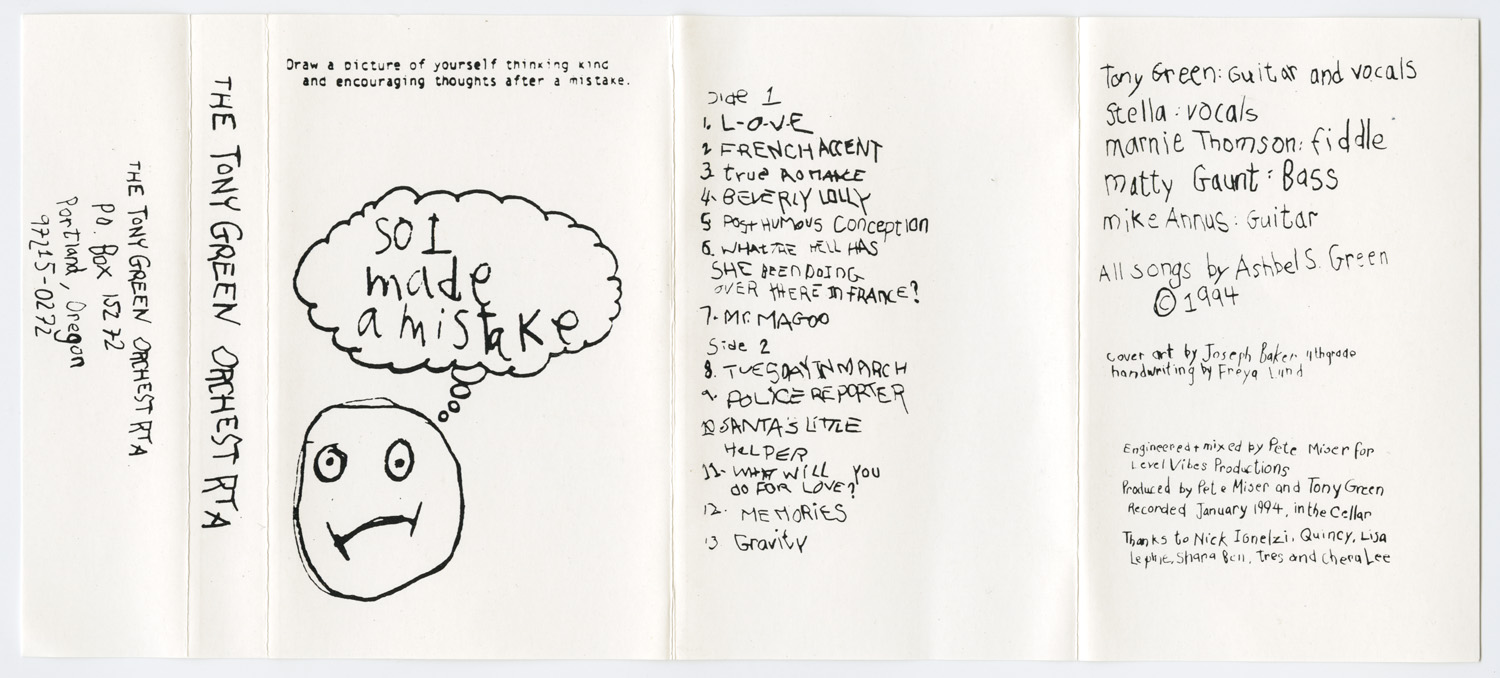 THE TONY GREEN ORCHESTRTA.
P.O. Box 15272
Portland, Oregon
97215-0272
THE TONY GREEN ORCHESTRTA
Draw a picture of yourself thinking kind
and encouraging thoughts after a mistake.
SO I
made
a mistake
Side 1
1. L-O-V-E
2 FRENCH ACCENT
3. true ROMANCE
4. BEVERLY LOLLY
5 POSTHUMOUS Conception
6. WHAT THE HELL HAS
SHE BEEN DOING
OVER THERE IN FRANCE?
7. Mr. MAGOO
Side 2
8. TUESDAY IN MARCH
9. POLICE REPORTER
10 SANTA'S LITTLE
HELPER
11. WHAT WILL YOU
DO FOR LOVE?
12. MEMORIES
13 Gravity
Tony Green: Guitar and vocals
Stella: vocals
marnie Thomson: fiddle
matty Gaunt: Bass
mike Annus: Guitar
All songs by Ashbel S. Green
© 1994
cover art by Joseph Baker 4thgrade
handwriting by Freya Lund
Engineered + mixed by Pete Miser for
Level Vibes Productions
Produced by Pete Miser and Tony Green
Recorded January 1994, in the Cellar
Thanks to Nick Ionelzi, Quincy, Lisa
Shana Ben, Tres and Chera Lee